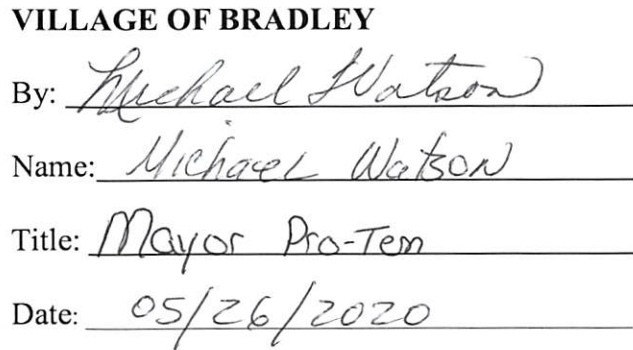 VILLAGE OF BRADLEY
By: Michael Watson
Name: Michael Watson
Title: Mayor Pro-Tem
Date: 05/26/2020